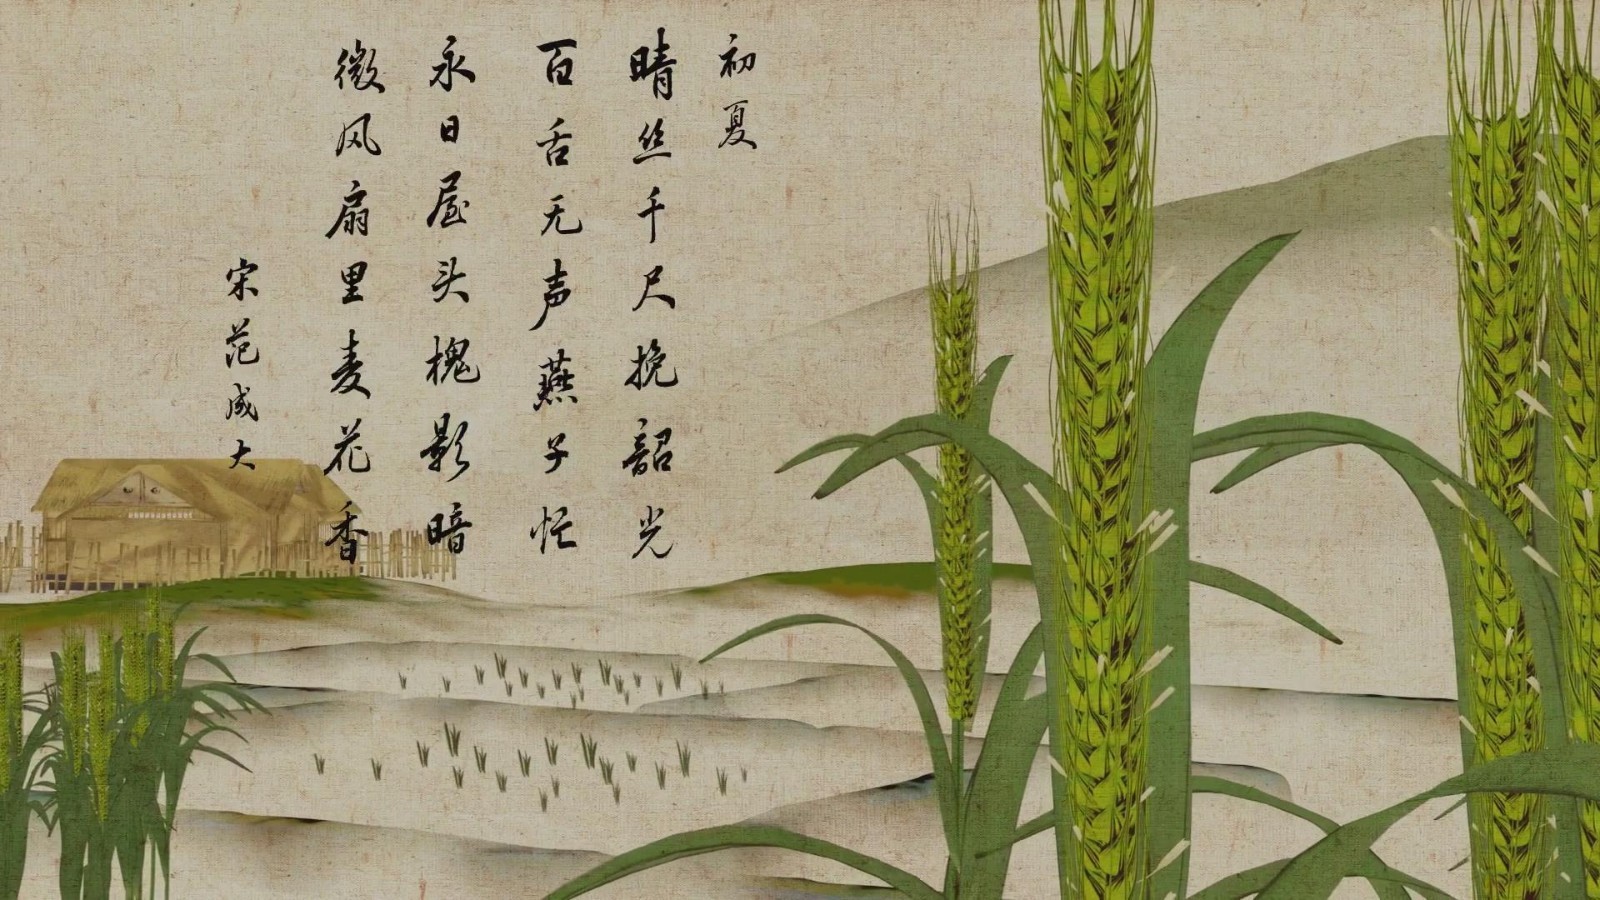 初夏
晴丝千尺挽韶光
百舌无声燕子忙
永日屋头槐影暗
微风扇里麦花香
宋范成大